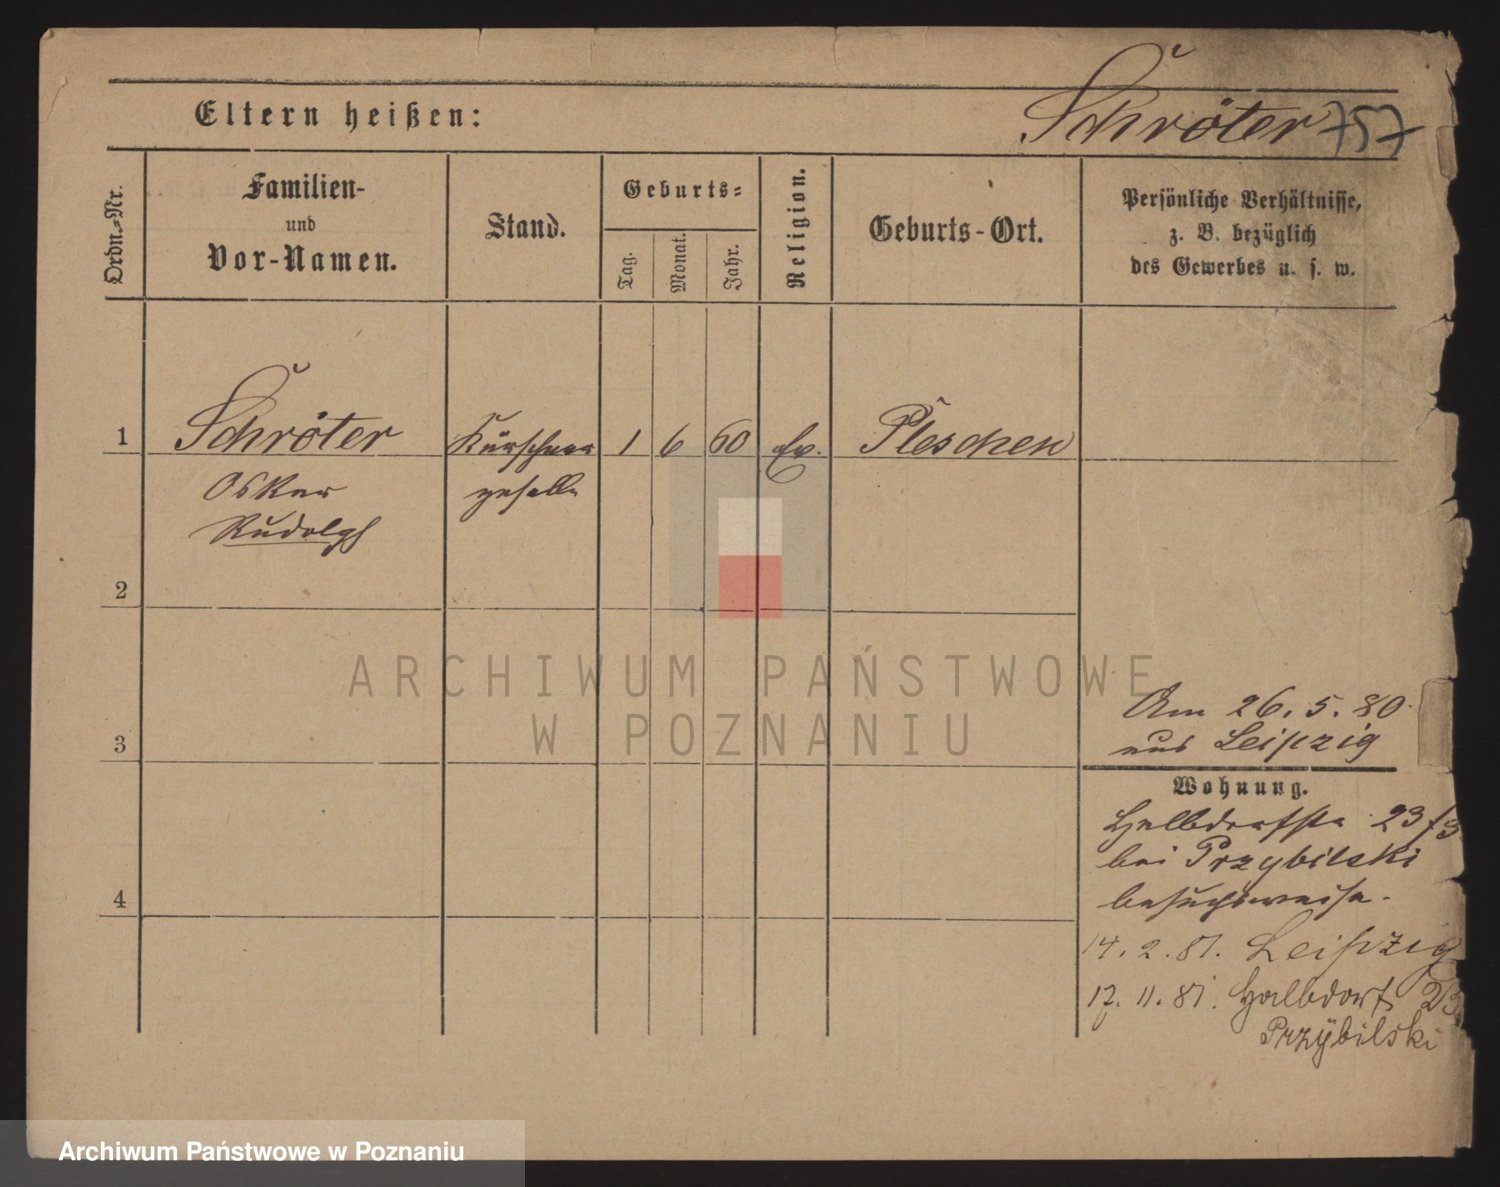 Eltern heißen:
Schröter 757
Ordn.-Nr.
Familien-
und
Vor-Namen.
Stand.
Geburts-
Tag.
Monat.
Jahr.
Religion.
Geburts-Ort.
Persönliche Verhältnisse,
z. B. bezüglich
des Gewerbes u. s. w.
1 Schröter Kürschner 1 6 60 Ev. Pleschen
Oskar geselle
Rudolph
2
3
4
Am 26. 5. 80.
aus Leipzig
Wohnung.
Halbdorfstr 23/3
bei Przybilski
besuchsweise.
14. 2. 81. Leipzig
17. 11. 81. Halbdorf 23
Przybilski
ARCHIWUM PAŃSTWOWE
W POZNANIU
Archiwum Państwowe w Poznaniu